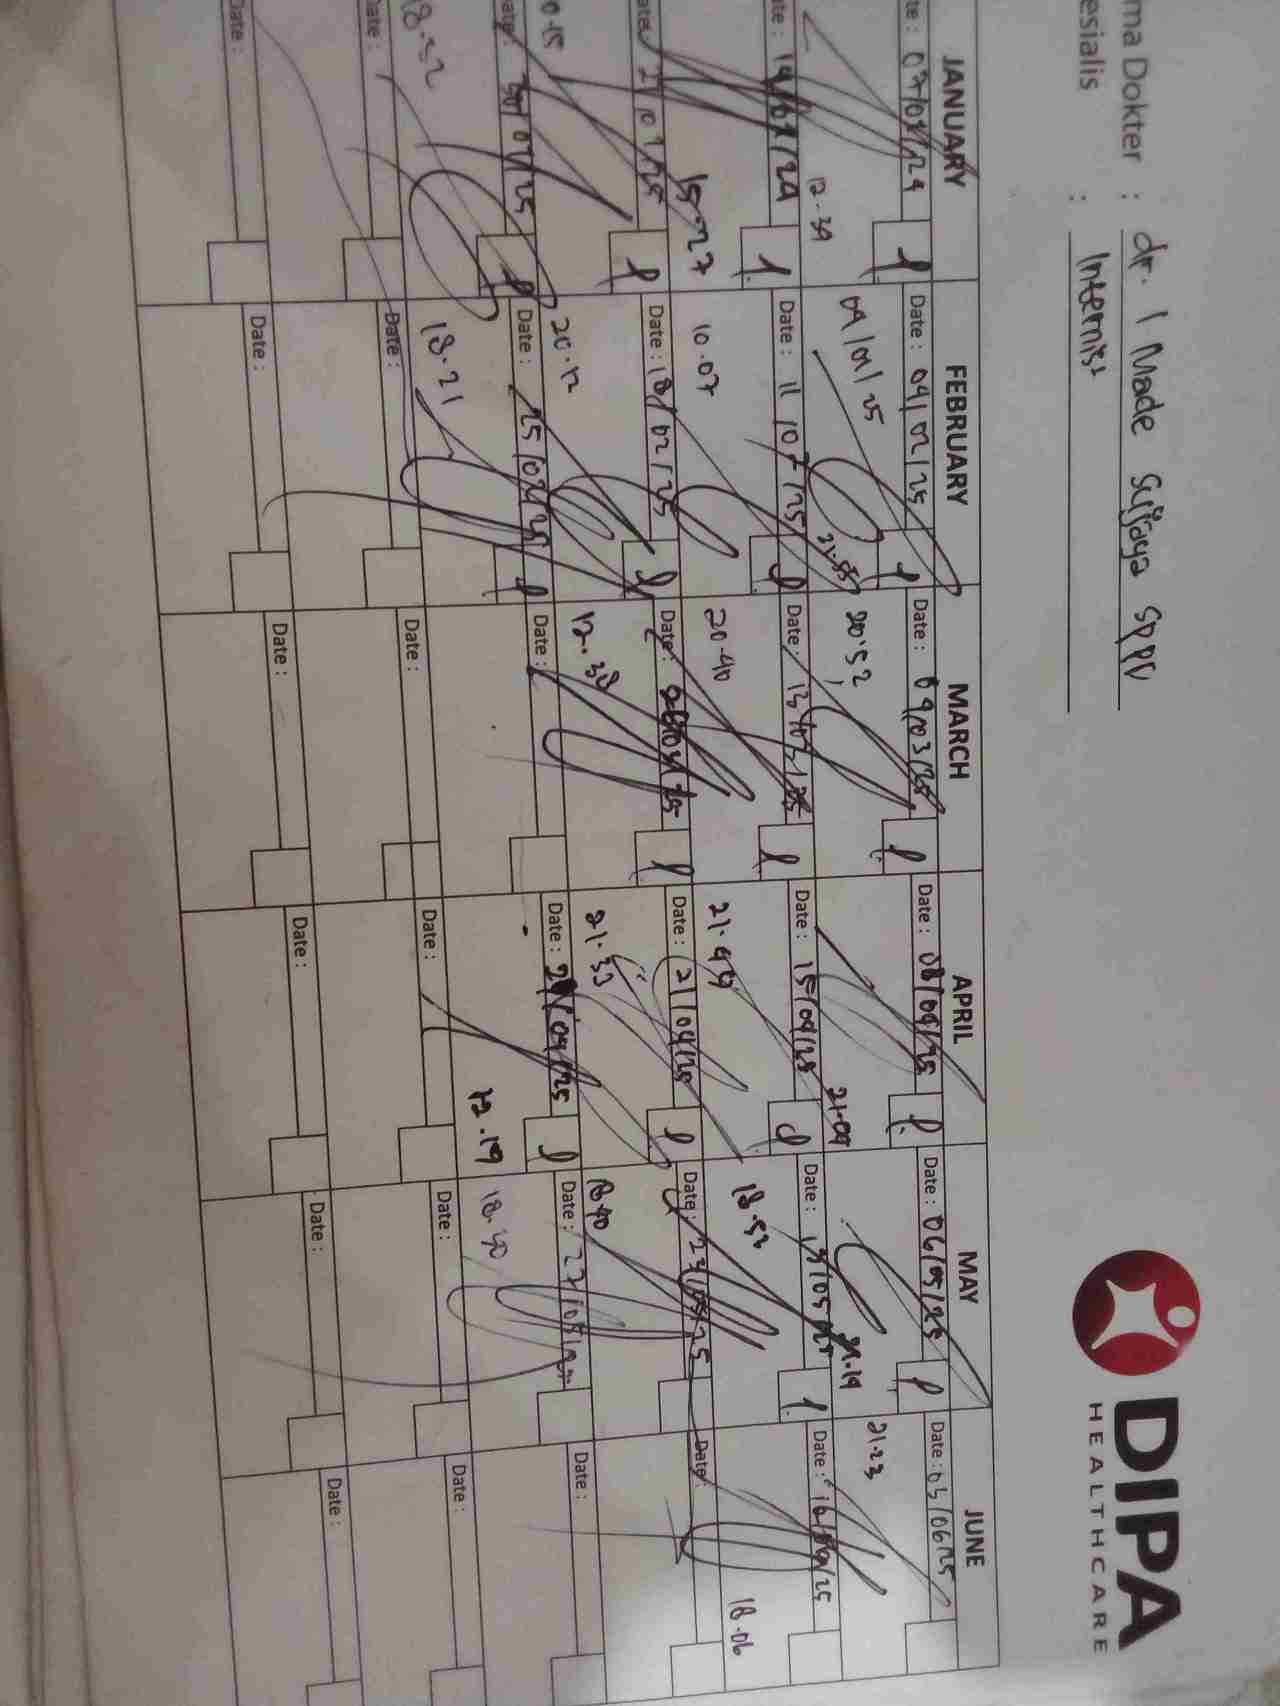 ma Dokter : dr. I Made Sujaya SpPD
esialis : Internist
DIPA
HEALTHCARE
JANUARY FEBRUARY MARCH APRIL MAY JUNE
te : 07/01/24 Date : 04/02/25 Date : 09/03/25 Date : 08/04/25 Date : 06/05/25 Date : 03/06/25
12.39 04/02/25 21.55 20.52 21.09 21.19 21.23
te : 14/01/24 Date : 11/02/25 Date : 13/03/25 Date : 15/04/25 Date : 19/05/25 Date : 16/06/25
15.27 10.07 20.40 21.49 18.53 18.06
ate : 21/01/25 Date : 18/02/25 Date : Date : 21/04/25 Date : 23/05/25 Date :
0.15 20.12 12.38 21.33 18.40
Date : 30/01/25 Date : 25/02/25 Date : Date : Date : 27/05/25 Date :
18.32 18.21 12.19 18.30
ate : Date : Date : Date : Date : Date :
Date : Date : Date : Date : Date : Date :